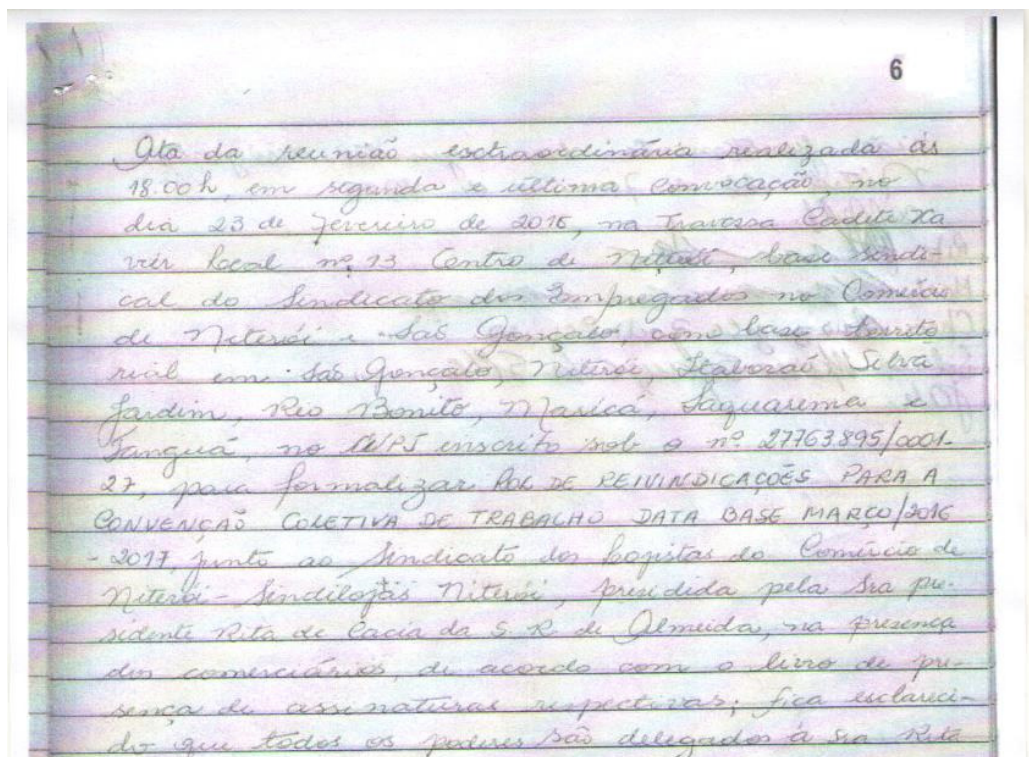 6
Ata da reunião esctraordinária realizada às
18:00h, em segunda e ultima convocação, no
dia 23 de Fevereiro de 2016, na Travessa Cadete Xa
vier local nº 13 Centro de Niterói, base sindi-
cal do Sindicato dos Empregados no Comércio
de Niterói e São Gonçalo, com base territo
rial em São Gonçalo, Niterói, Itaboraí Silva
Jardim, Rio Bonito, Maricá, Saquarema e
Tanguá, no CNPJ inscrito sob o nº 27763.895/0001-
27, para formalizar ROL DE REIVINDICAÇÕES PARA A
CONVENÇAÕ COLETIVA DE TRABALHO DATA BASE MARÇO/2016
-2017, junto ao Sindicato dos Logistas do Comércio de
Niterói - Sindilojas Niterói, presidida pela Sra pre-
sidente Rita de Cacia da S. R. de Almeida, na presença
dos comerciários, de acordo com o livro de pre-
sença de assinaturas respectivas; fica esclareci-
do que todos os poderes são delegados à Sra Rita